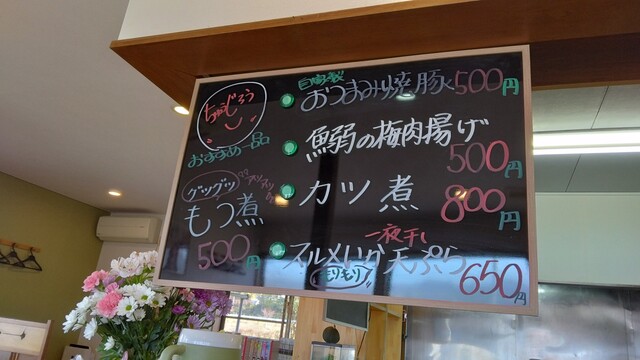 ちゅうじろう
おすすめ一品
グツグツ
アツアツ
もつ煮
500円
自家製
おつまみ焼豚 500円
鰯の梅肉揚げ
500円
カツ煮 800円
一夜干し
スルメいか天ぷら
もりもり
650円